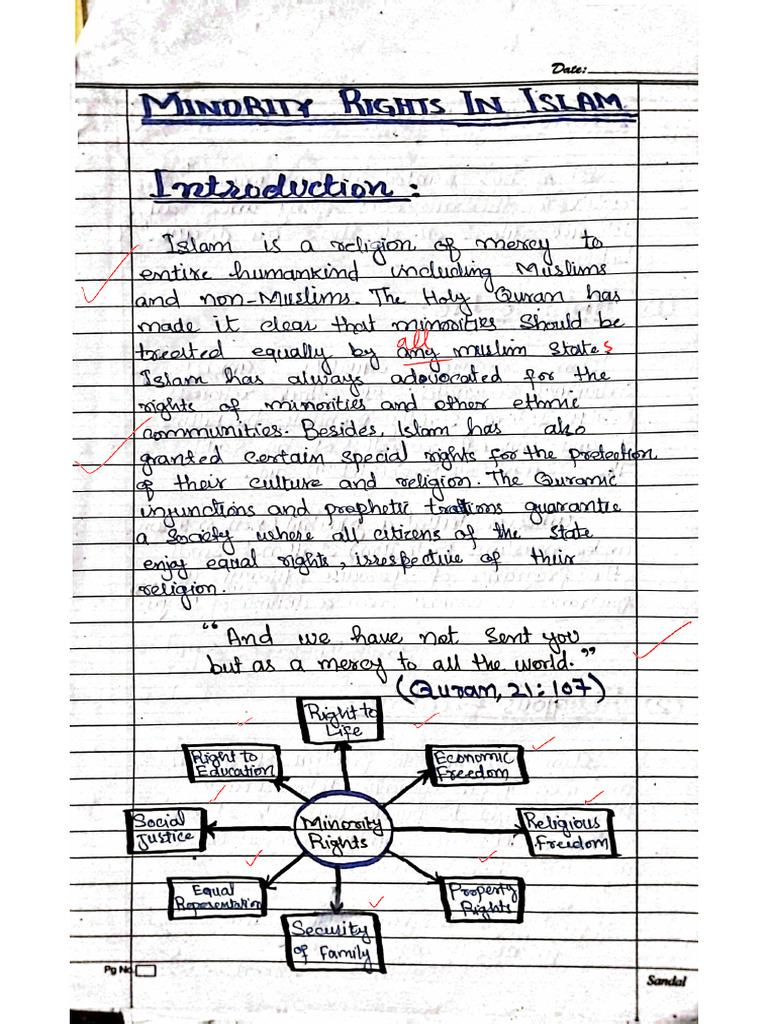 Date:
MINORITY RIGHTS IN ISLAM
Introduction:
Islam is a religion of mercy to
entire humankind including Muslims
and non-Muslims. The Holy Quran has
made it clear that minorities should be
all
treated equally by any muslim states
Islam has always advocated for the
rights of minorities and other ethnic
communities. Besides, Islam has also
granted certain special rights for the protection
of their culture and religion. The Quranic
injunctions and prophetic guarantee
a society where all citizens of the state
enjoy equal rights, irrespective of their
religion.
"And we have not sent you
but as a mercy to all the world."
(Quran, 21:107)
Right to
Life
Right to
Education
Economic
freedom
Social
Justice
Minority
Rights
Religious
freedom
Equal
Representation
Property
Rights
Security
of Family
Pg No.
Sandal